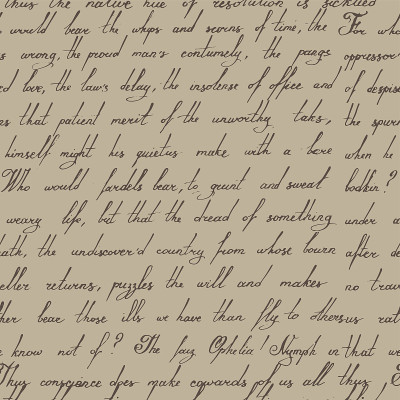 thus the native hue of resolution is sicklied
would bear the whips and scorns of time, the For who
s wrong, the proud man's contumely, the pangs oppressor
ed love, the law's delay, the insolense of office and of despis
es that patient merit of the unworthy taks, the spurn
himself might his quietus make with a bare when he
Who would fardels bear, to grunt and sweat bodkin?
weary life, but that the dread of something under a
eath, the undiscover'd country from whose bourn after de
eller returns, puzzles the will and makes no trav
ther bear those ills we have than fly to others us rat
e know not of? The fair Ophelia! Nymph in that we
Thus conscience does make cowards of us all thus,